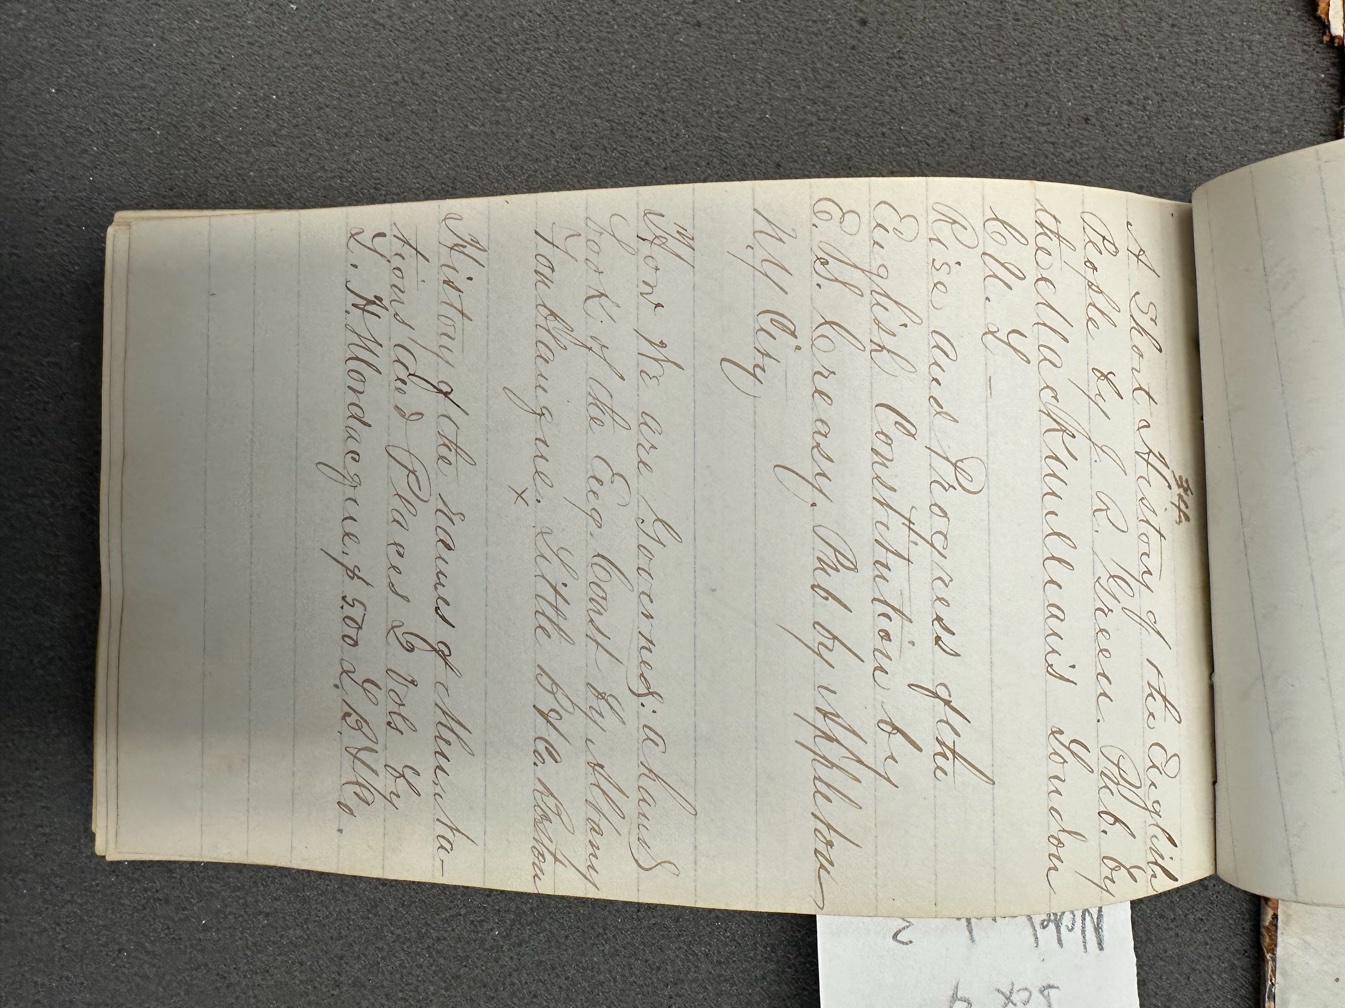 A Short History of the English
People by J. R. Green. Pub. by
the Mackmillians London
Rise and Progress of the
English Constitution by
E. S. Creasy. Pub by Appleton
N.Y City
How We are Governed: a hand
book of the Eng. Const by Albany
Fonblanque. Little B & Co Boston
x
History of the names of Men Na-
tions and Places 2 Vols by
L. H. Mordacque. $ 5.00 L. B. & Co.
Box 9
2